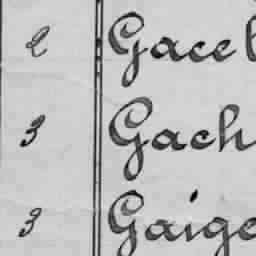 2 Gacel
3 Gach
3 Gaige